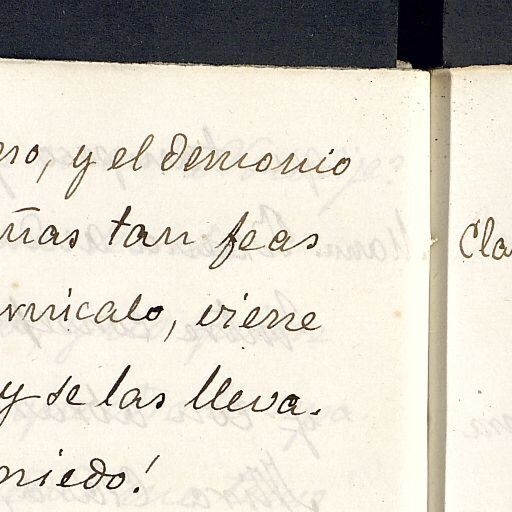 no, y el demonio
uñas tan feas
rnicalo, viene
y se las lleva.
miedo!
Cla